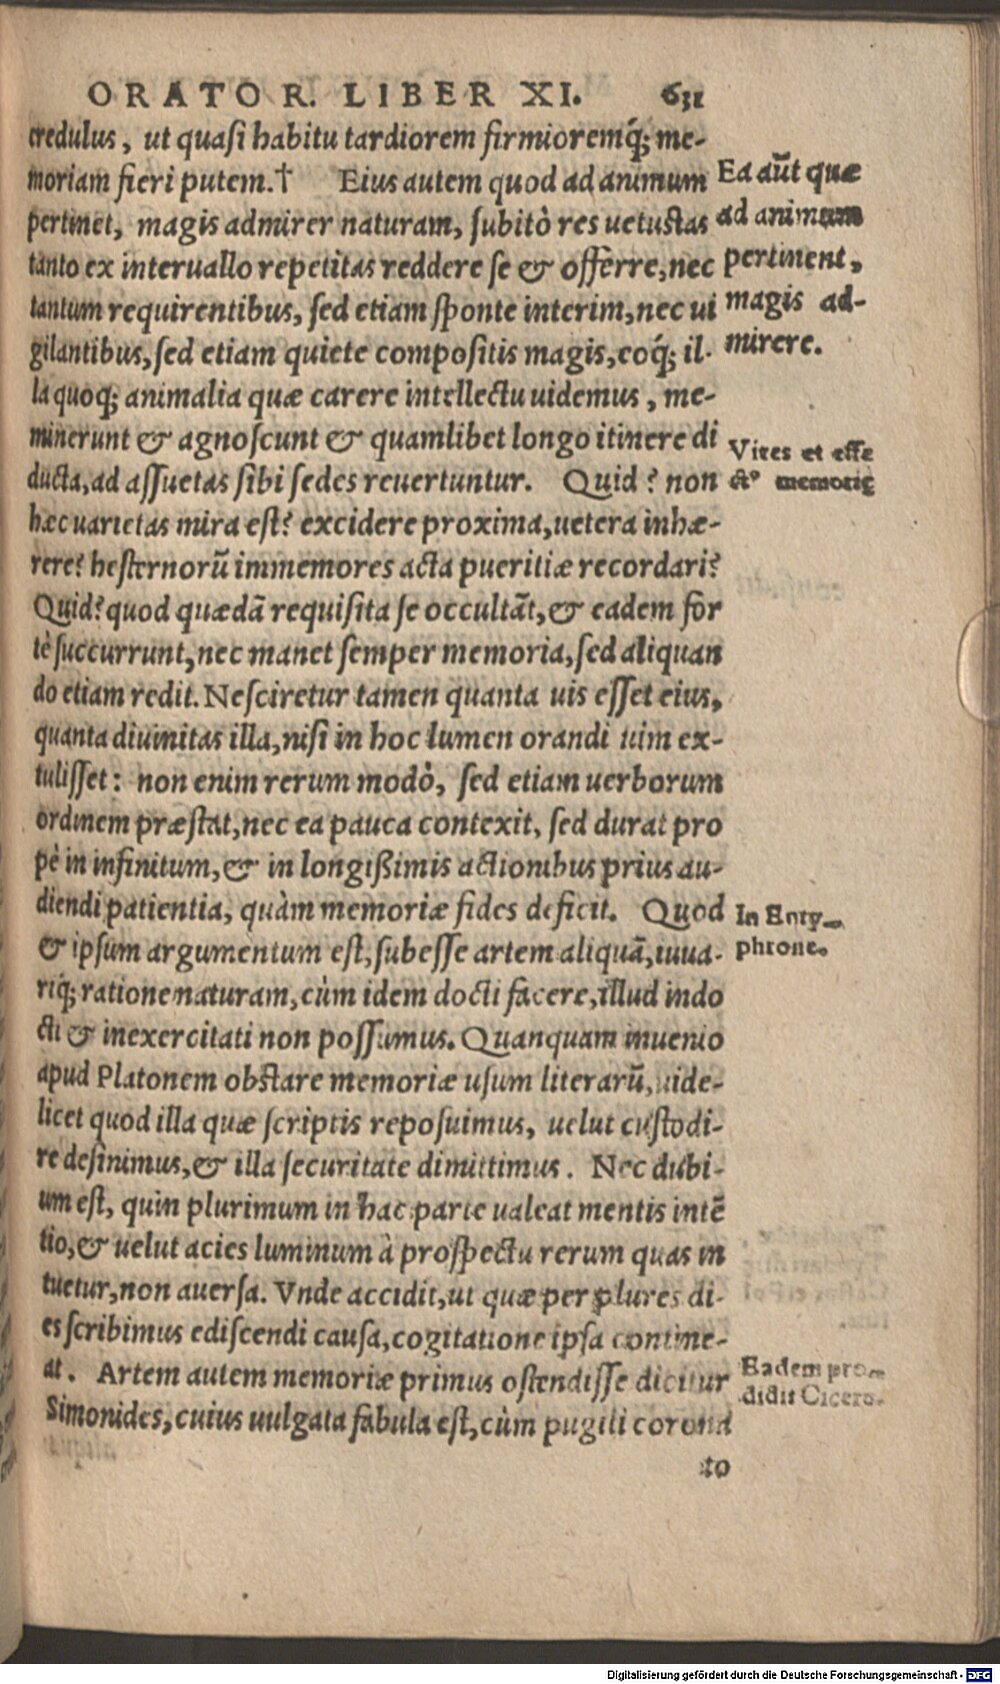 ORATOR. LIBER XI. 631
credulus, ut quasi habitu tardiorem firmioremq́; me-
moriam fieri putem.† Eius autem quod ad animum
pertinet, magis admirer naturam, subitò res uetustas
tanto ex interuallo repetitas reddere se & offerre, nec
tantum requirentibus, sed etiam sponte interim, nec ui
gilantibus, sed etiam quiete compositis magis, eoq́; il-
la quoq; animalia quæ carere intellectu uidemus, me-
minerunt & agnoscunt & quamlibet longo itinere di
ducta, ad assuetas sibi sedes reuertuntur. Quid? non
hæc uarietas mira est? excidere proxima, uetera inhæ-
rere? hesternorũ immemores acta pueritiæ recordari?
Quid? quod quædã requisita se occultãt, & eadem for
tè succurrunt, nec manet semper memoria, sed aliquan
do etiam redit. Nesciretur tamen quanta uis esset eius,
quanta diuinitas illa, nisi in hoc lumen orandi uim ex-
tulisset: non enim rerum modò, sed etiam uerborum
ordinem præstat, nec ea pauca contexit, sed durat pro
pè in infinitum, & in longißimis actionibus prius au-
diendi patientia, quàm memoriæ fides deficit. Quod
& ipsum argumentum est, subesse artem aliquã, iuua-
riq́; ratione naturam, cùm idem docti facere, illud indo
cti & inexercitati non possumus. Quanquam inuenio
apud Platonem obstare memoriæ usum literarũ, uide-
licet quod illa quæ scriptis reposuimus, uelut custodi-
re desinimus, & illa securitate dimittimus. Nec dubi-
um est, quin plurimum in hac parte ualeat mentis intẽ
tio, & uelut acies luminum à prospectu rerum quas in
tuetur, non auersa. Vnde accidit, ut quæ per plures di-
es scribimus ediscendi causa, cogitatione ipsa contine-
at. Artem autem memoriæ primus ostendisse dicitur
Simonides, cuius uulgata fabula est, cùm pugili corona
to
Ea aũt quæ
ad animum
pertinent,
magis ad-
mirere.
Vires et effe
ctꝰ memorię
In Enty-
phrone.
Eadem pro-
didit Cicero.
Digitalisierung gefördert durch die Deutsche Forschungsgemeinschaft - DFG